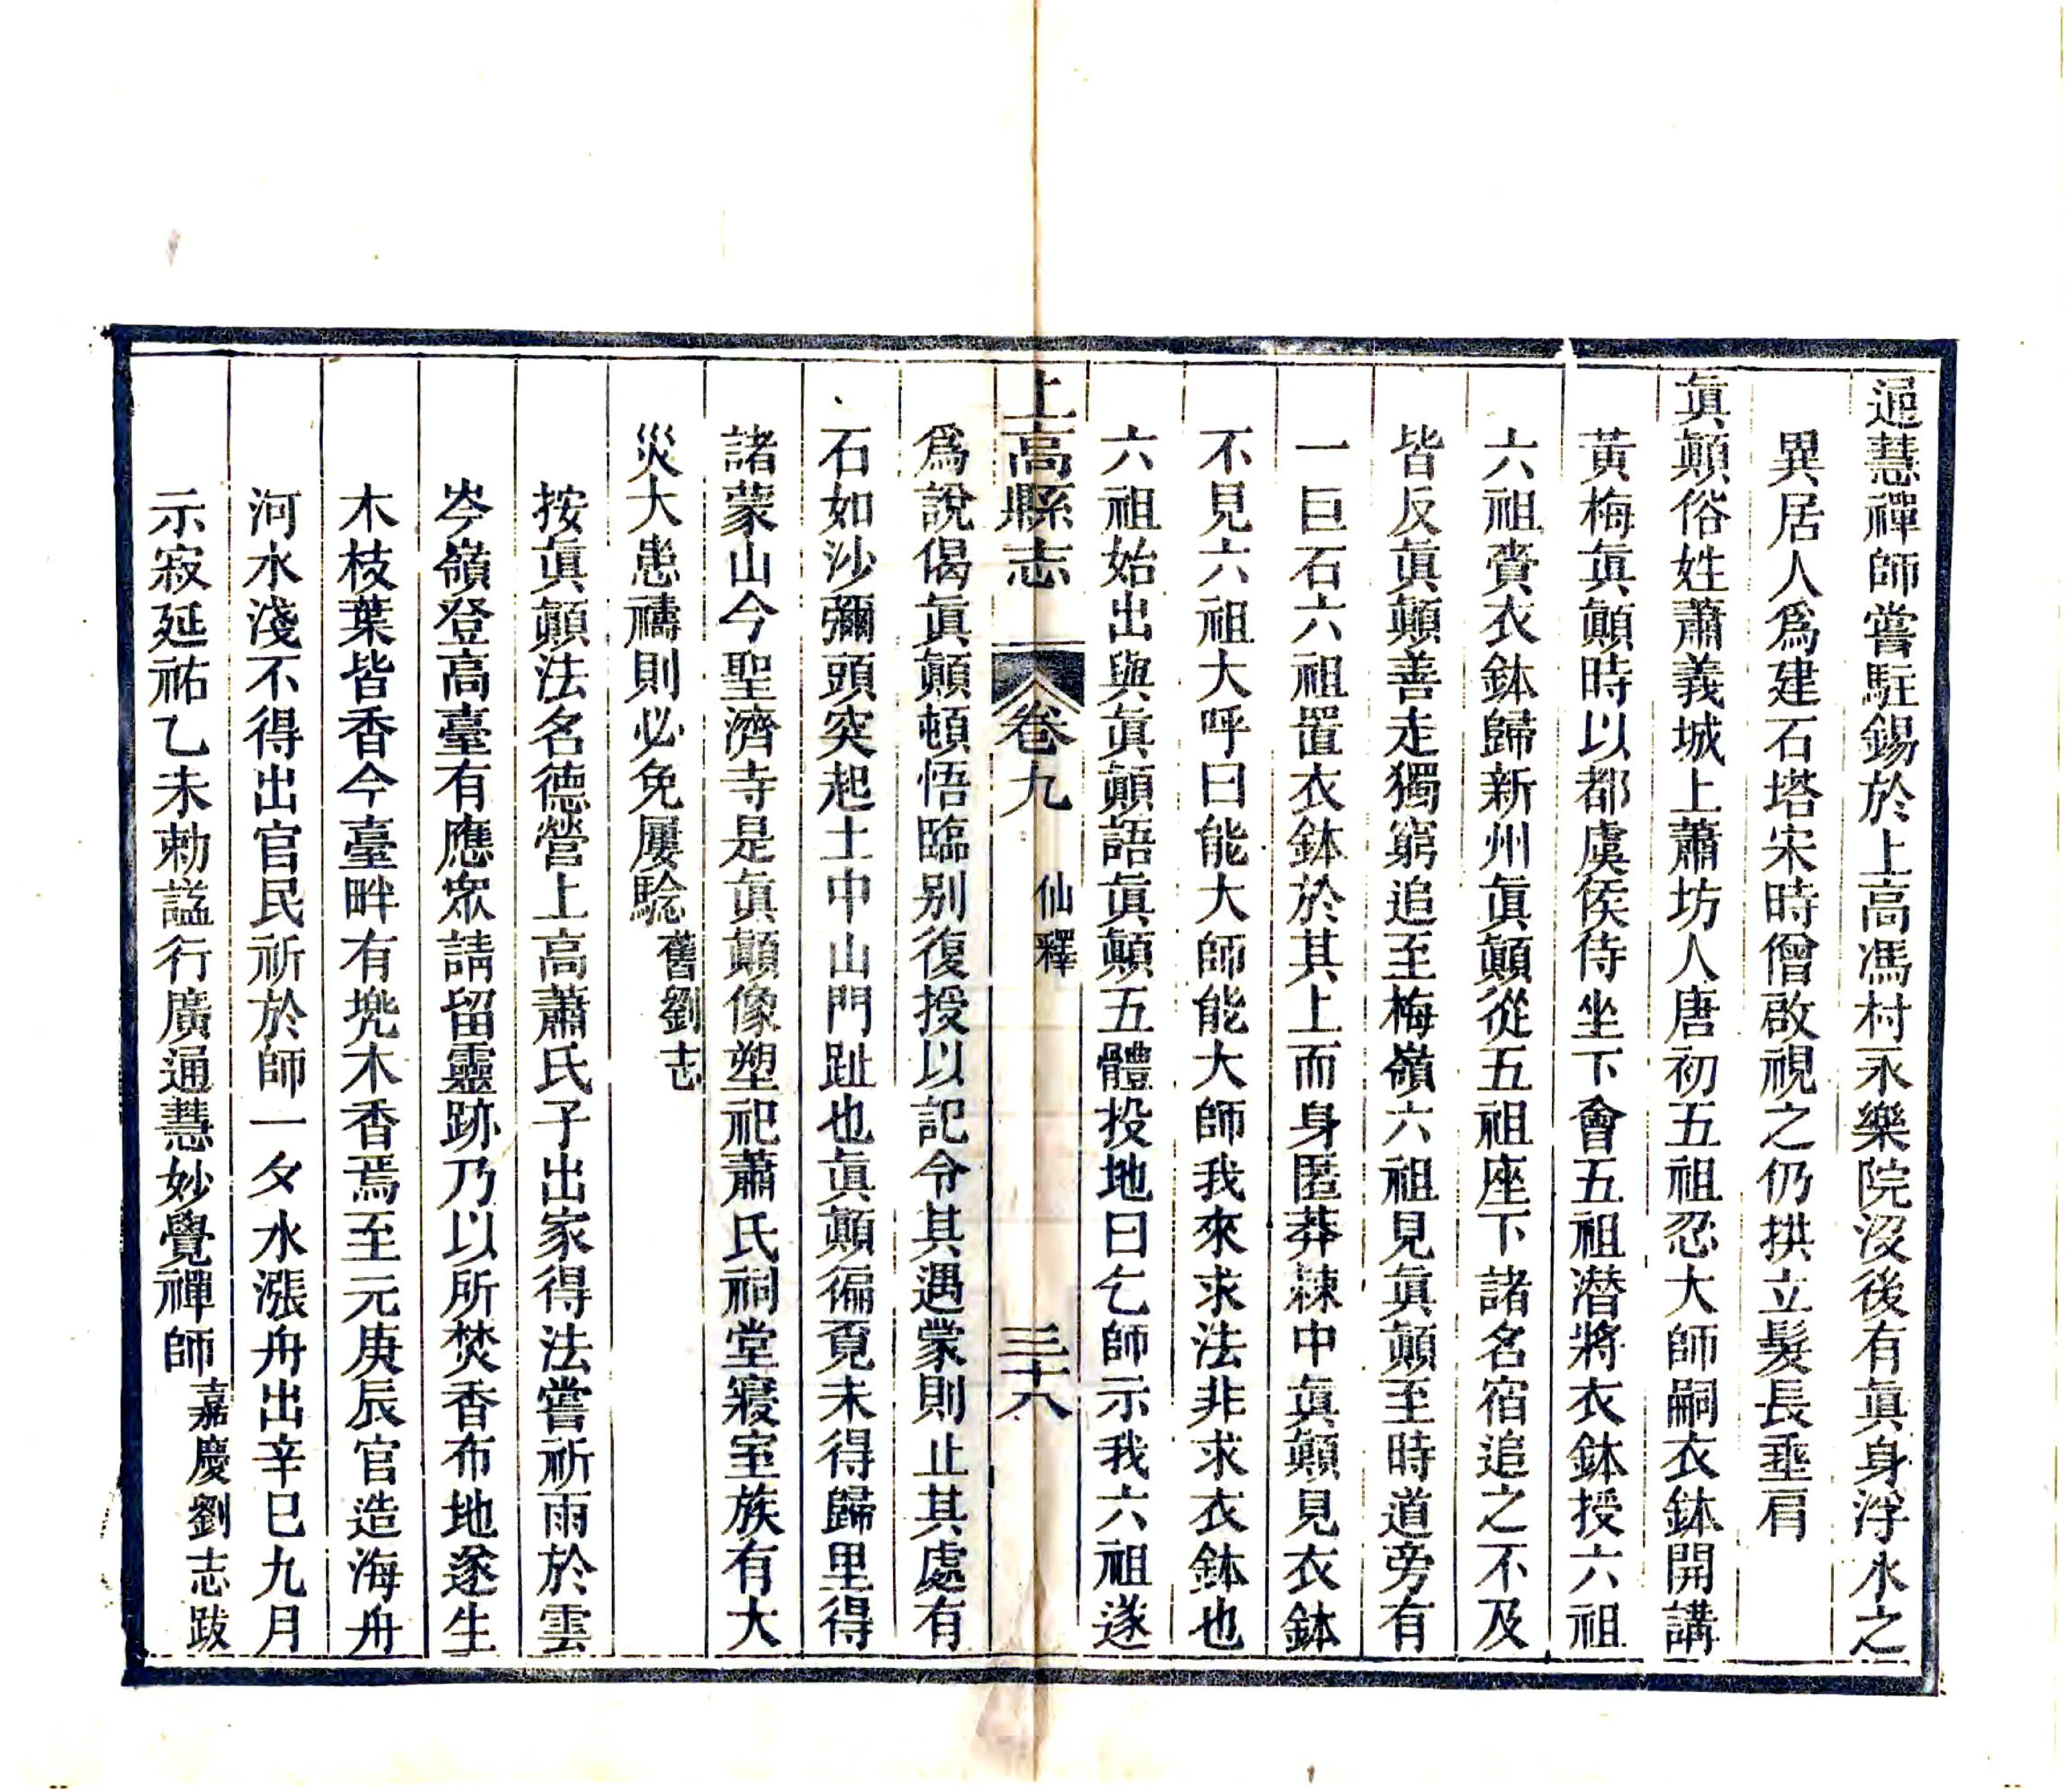 逈慧禪師嘗駐錫於上高馮村永樂院沒後有眞身浮水之
異居人爲建石塔宋時僧啟視之仍拱立髮長垂肩
眞顚俗姓蕭義城上蕭坊人唐初五祖忍大師嗣衣鉢開講
黃梅眞顚時以都虞侯侍坐下會五祖潛將衣鉢授六祖
六祖賫衣鉢歸新州眞顚從五祖座下諸名宿追之不及
皆反眞顚善走獨窮追至梅嶺六祖見眞顚至時道旁有
一巨石六祖置衣鉢於其上而身匿莽棘中眞顚見衣鉢
不見六祖大呼曰能大師能大師我來求法非求衣鉢也
六祖始出與眞顚語眞顚五體投地曰乞師示我六祖遂
上高縣志 卷九 仙釋 三十八
爲說偈眞顚頓悟臨別復授以記令其遇蒙則止其處有
石如沙彌頭突起土中山門趾也眞顚徧覓未得歸里得
諸蒙山今聖濟寺是眞顚像塑祀蕭氏祠堂寢室族有大
災大患禱則必免屢騐舊劉志
按眞顚法名德營上高蕭氏子出家得法嘗祈雨於雲
岑嶺登高臺有應眾請留靈跡乃以所焚香布地遂生
木枝葉皆香今臺畔有兠木香焉至元庚辰官造海舟
河水淺不得出官民祈於師一夕水漲舟出辛巳九月
示寂延祐乙未勅諡行廣通慧妙覺禪師嘉慶劉志跋